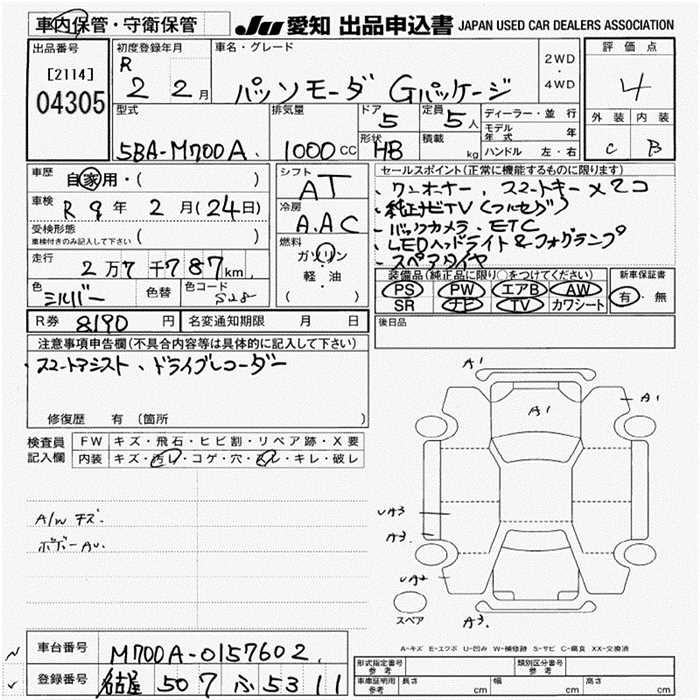 車内保管・守衛保管
JU 愛知 出品申込書 JAPAN USED CAR DEALERS ASSOCIATION
出品番号
[2114]
04305
初度登録年月
R 2 2月
車名・グレード
パッソモーダ Gパッケージ
2WD
・
4WD
評価点
4
外装 内装
C B
型式
5BA-M700A
排気量
1000 CC
ドア
5
定員
5人
形状
HB
積載
kg
ディーラー・並行
モデル年式 年
ハンドル 左・右
車歴
自家用・( )
車検
R 9年 2月(24日)
受検形態
車検付きのみ記入して下さい ( )
走行
2万7千787km
色
シルバー
色替
色コード
S28
シフト
AT
冷房
A.AC
燃料
ガソリン
軽・油
( )
セールスポイント(正常に機能するものに限ります)
・ワンオーナー、スマートキー×2コ
・純正ナビTV(フルセグ)
・バックカメラ、ETC
・LEDヘッドライト&フォグランプ
・スペアタイヤ
装備品(純正品に限り○をつけてください)
PS PW エアB AW
SR ナビ TV カワシート
新車保証書
有・無
R券 8190 円
名変通知期限 月 日
後日品
注意事項申告欄(不具合内容等は具体的に記入して下さい)
・スマートアシスト、ドライブレコーダー
修復歴 有 (箇所 )
検査員
記入欄
FW キズ・飛石・ヒビ割・リペア跡・X要
内装 キズ・汚レ・コゲ・穴・・キレ・破レ
A/W キズ
ボデーAU.
A1
A1
A1
UA3
A3.
UA2
A3.
スペア
A-キズ E-エクボ U-凹み W-補修跡 S-サビ C-腐食 XX-交換済
車台番号
M700A-0157602
登録番号
名古屋 507 ふ 5311
形式指定番号
参考
類別区分番号
参考
車庫証明用
参考
長さ cm
幅 cm
高さ cm